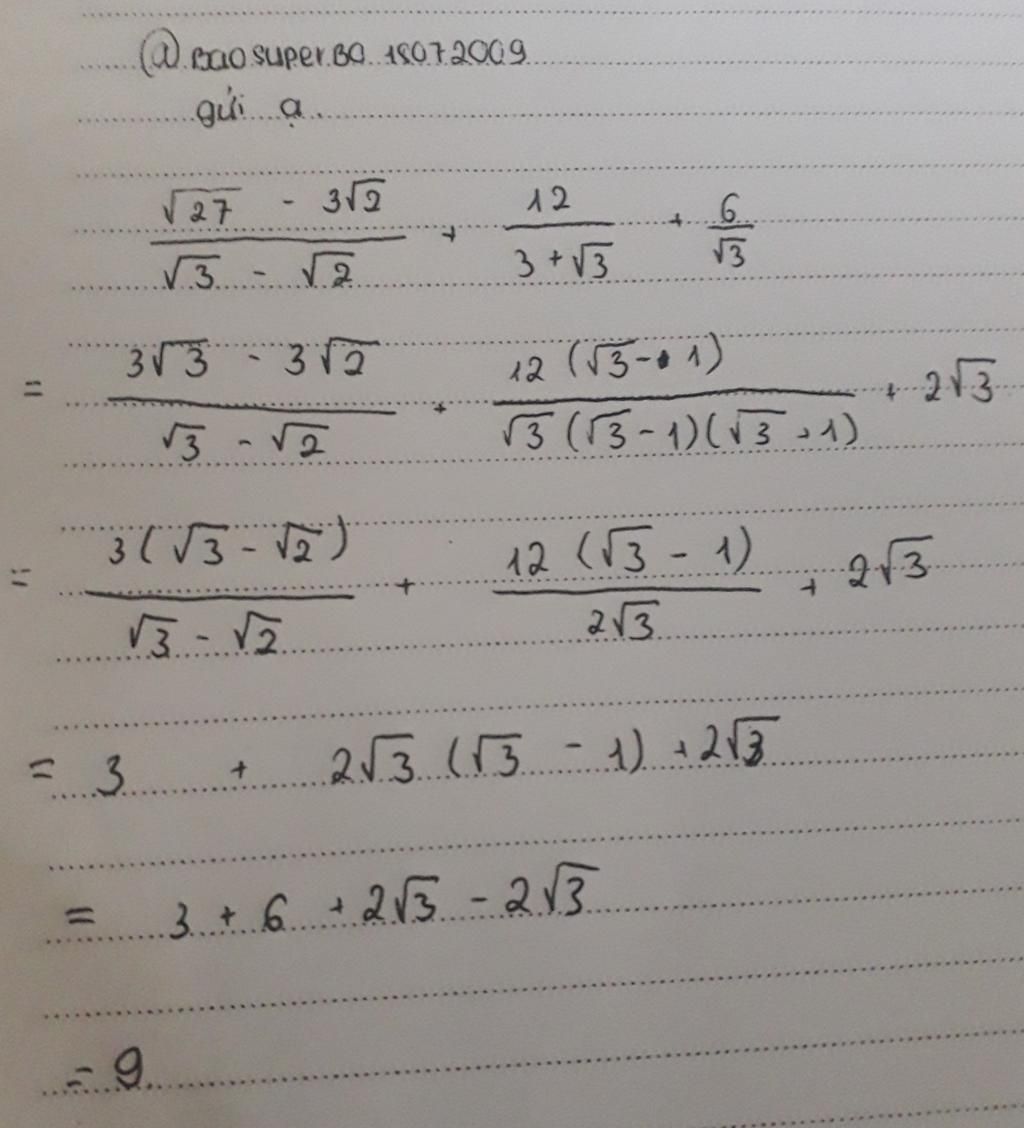 @BaosuperBO.18072009
gửi ạ.
(√27 - 3√2)/(√3 - √2) + 12/(3 + √3) + 6/√3
= (3√3 - 3√2)/(√3 - √2) + 12(√3 - 1)/(√3(√3 - 1)(√3 + 1)) + 2√3
= 3(√3 - √2)/(√3 - √2) + 12(√3 - 1)/(2√3) + 2√3
= 3 + 2√3(√3 - 1) + 2√3
= 3 + 6 + 2√3 - 2√3
= 9